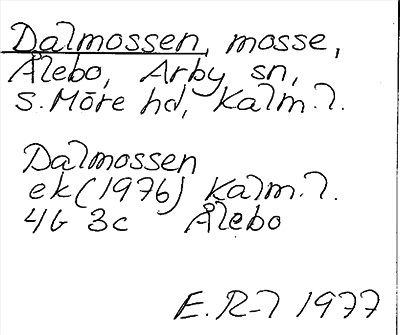 Dalmossen, mosse,
Ålebo, Arby sn,
S. Möre hd, Kalm. l.
Dalmossen
ek (1976) Kalm. l.
4G 3c Ålebo
E. R-l 1977